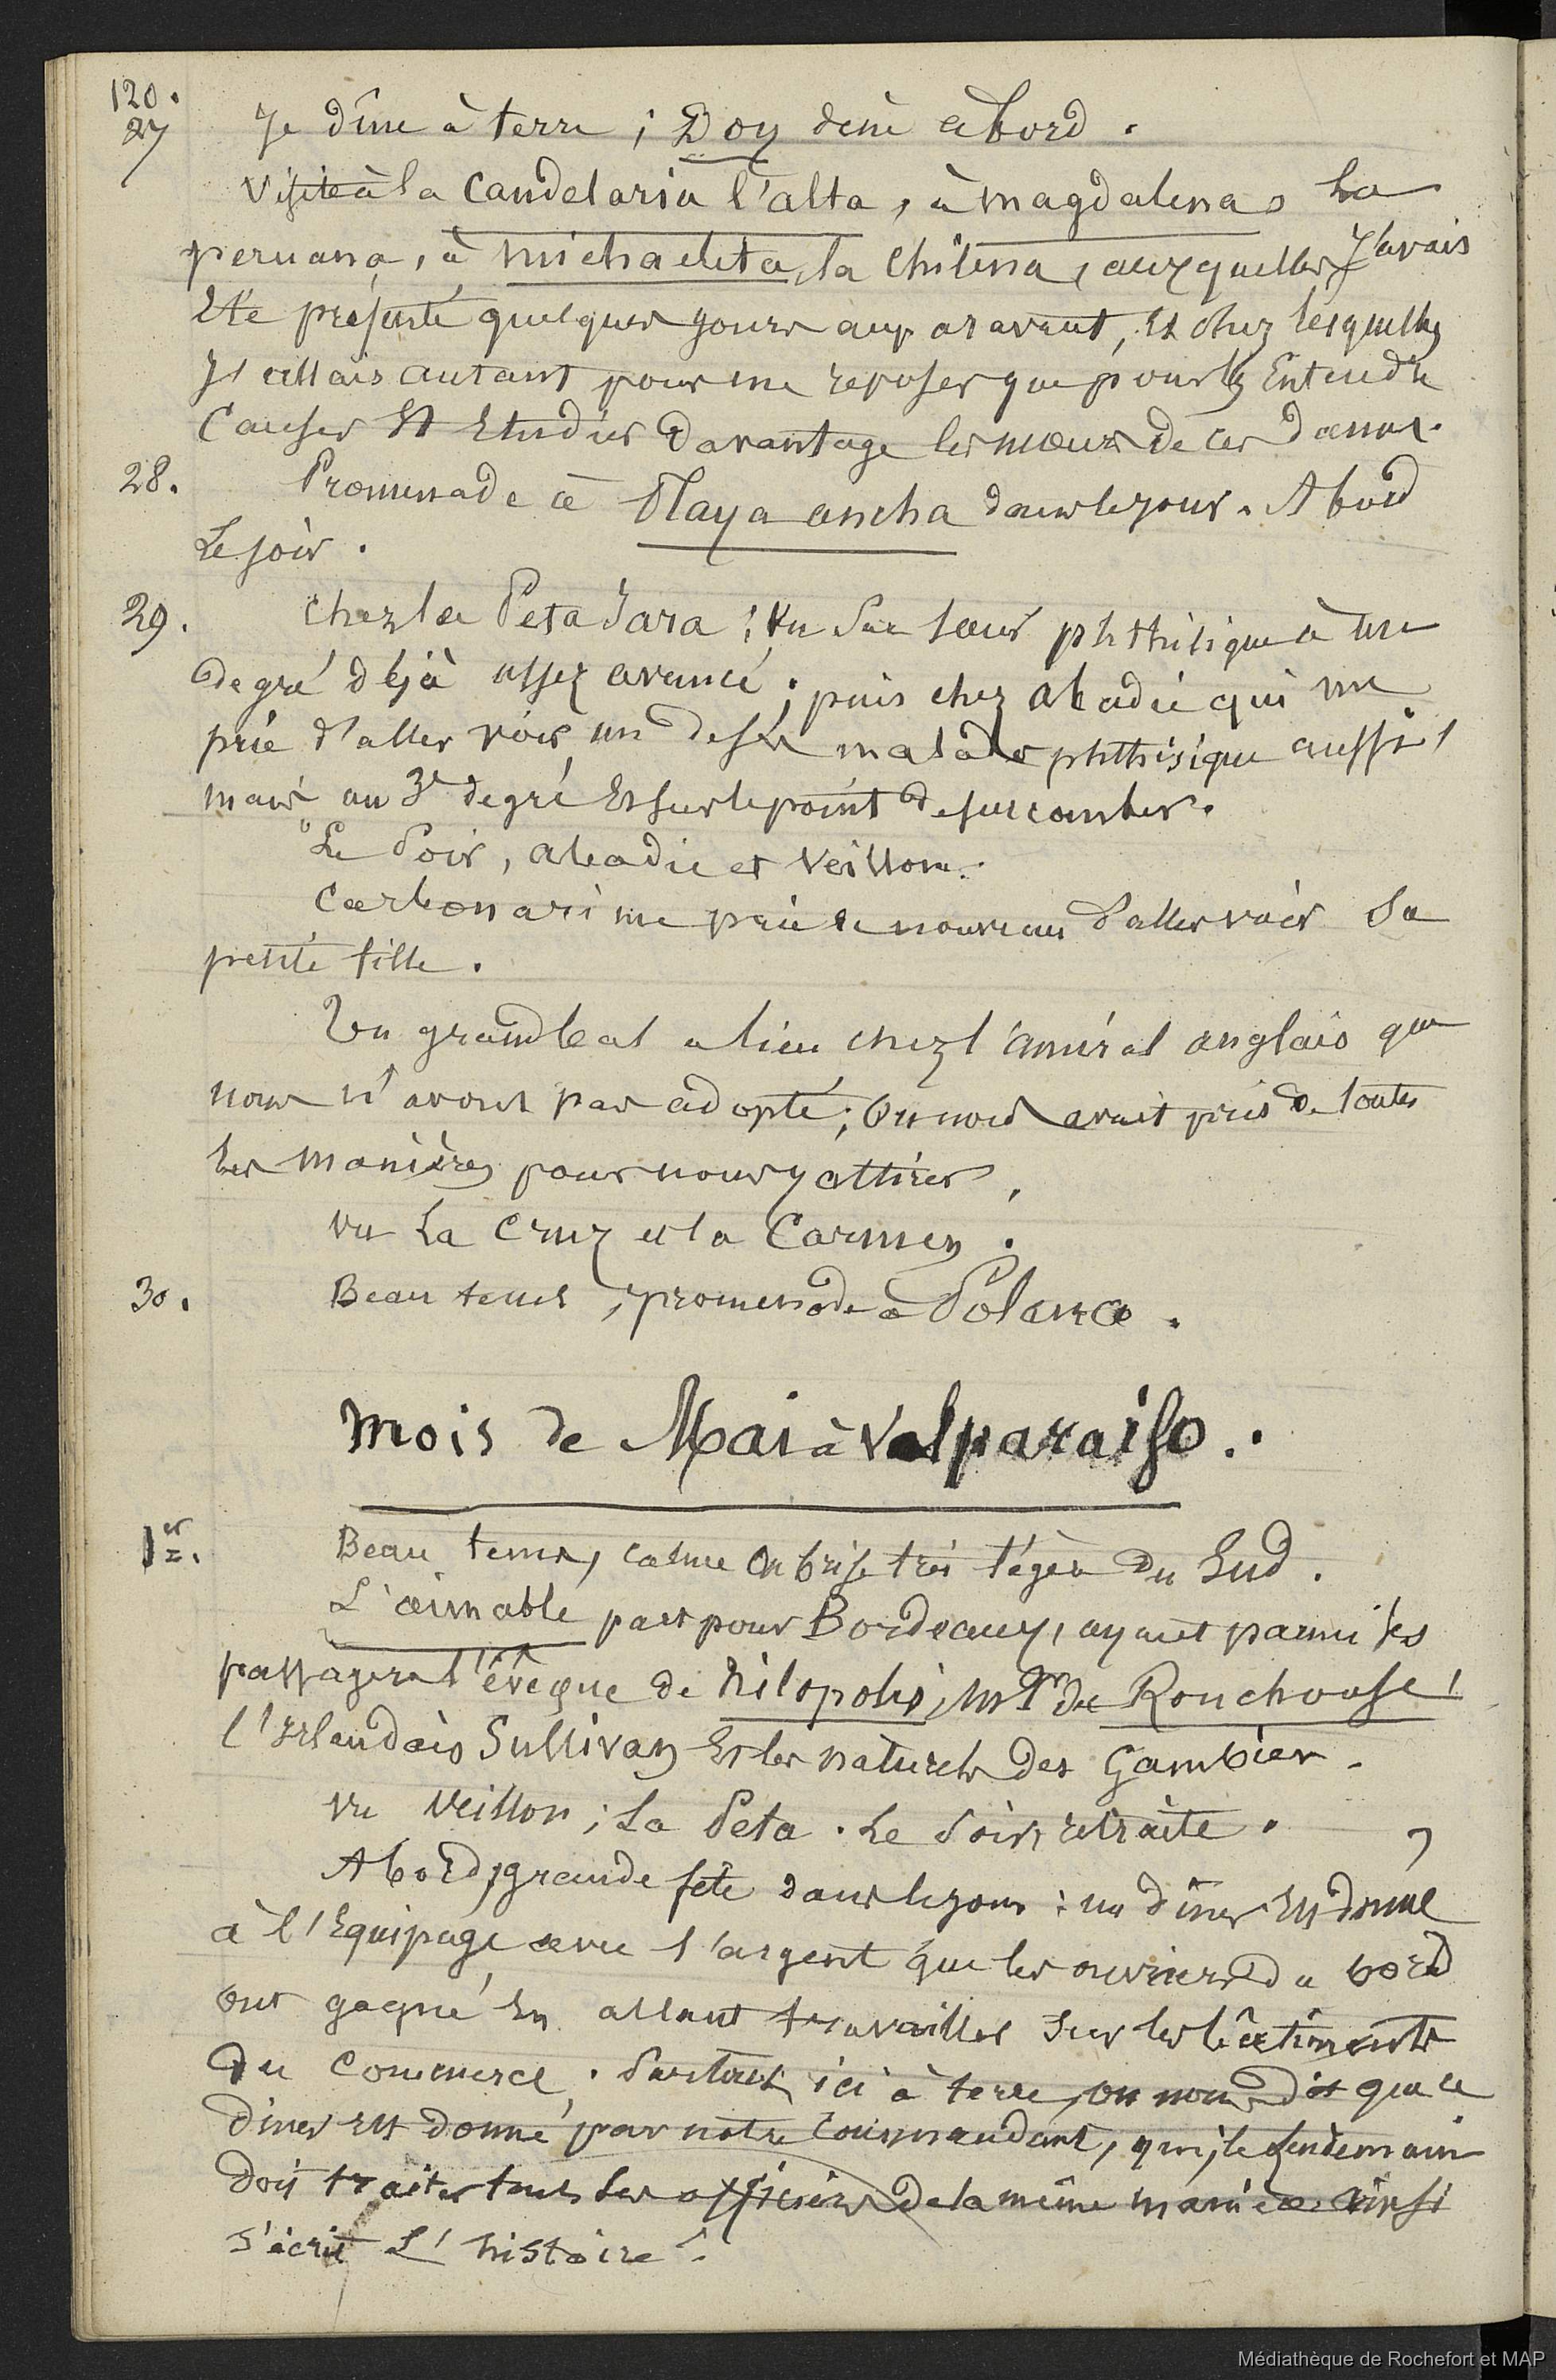 120.
27 Je dîne à terre ; Doy dine à bord.
Visite à la Candelaria l'alta, à magdalena la
peruana, à michaelita, la Chilena, auxquelles J'avais
Eté présenté quelques jours auparavant, Et chez lesquelles
J'allais autant pour me reposer que pour les Entendre
Causer Et Etudier davantage les mœurs de ces dames.
28. Promenade à Playa ancha dans le jour. A bord
Le soir.
29. chez la Peta Jara ; Vu Sa sœur phthisique à un
degré déjà assez avancé ; puis chez abadie qui me
prie d'aller voir un de ses malades phthisique aussi,
mais au 3e degré Et sur le point de succomber.
Le Soir, abadie et Veillon.
Carbonari me prie de nouveau d'aller voir Sa
petite fille.
Un grand bal a lieu chez l'amiral anglais que
nous n'avons pas adopté ; On nous avait pris de toutes
les manières pour nous y attirer.
vu La Cruz et la Carmen.
30. Beau tems, promenade à Polanco.
Mois de Mai à Valparaiso.
1er. Beau tems, calme Ou brise très légère du Sud.
L'aimable part pour Bordeaux, ayant parmi ses
passagers l'évêque de Nilopolis, Mr de Rouchouse,
l'Irlandais Sullivan Et les naturels des Gambier.
vu Veillon ; La Peta. Le Soir, retraite.
A bord, grande fête dans le jour : un dîner Est donné
à l'Equipage avec l'argent que les ouvriers du bord
ont gagné En allant travailler Sur les bâtiments
du Commerce. Partout, ici à terre, on nous dit que ce
diner Est donné par notre Commandant, qui, le lendemain
doit traiter tous les officiers de la même manière. Ainsi
s'écrit L'histoire.
Médiathèque de Rochefort et MAP